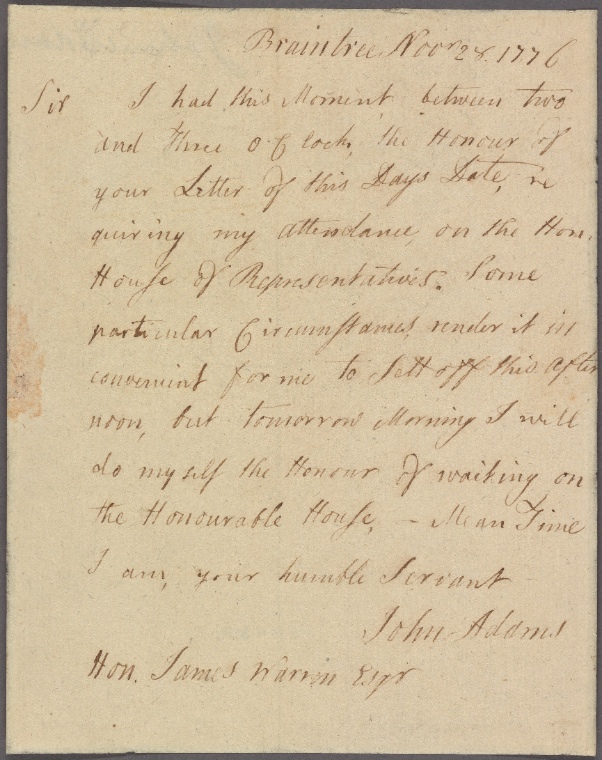 Braintree Novr 28. 1776
Sir I had this Moment, between two
and Three O Clock, the Honour of
your Letter of this Days Date, re
quiring my attendance, on the Hon.
House of Representatives. Some
particular Circumstances, render it in
convenient for me to Sett off this After
noon, but tomorrow Morning I will
do myself the Honour of waiting on
the Honourable House, - Mean Time
I am, your humble Servant
John Adams
Hon. James Warren Esqr